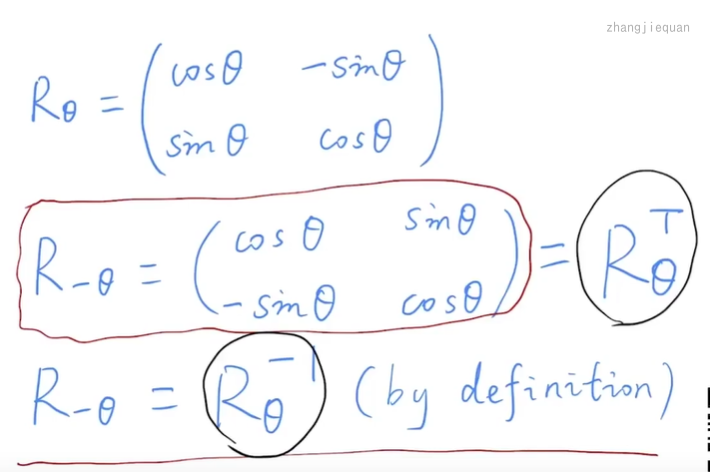 zhangjiequan
R_θ = ( cosθ  -sinθ
sinθ  cosθ )
R_-θ = ( cosθ  sinθ
-sinθ  cosθ ) = R_θ^T
R_-θ = R_θ^-1 (by definition)